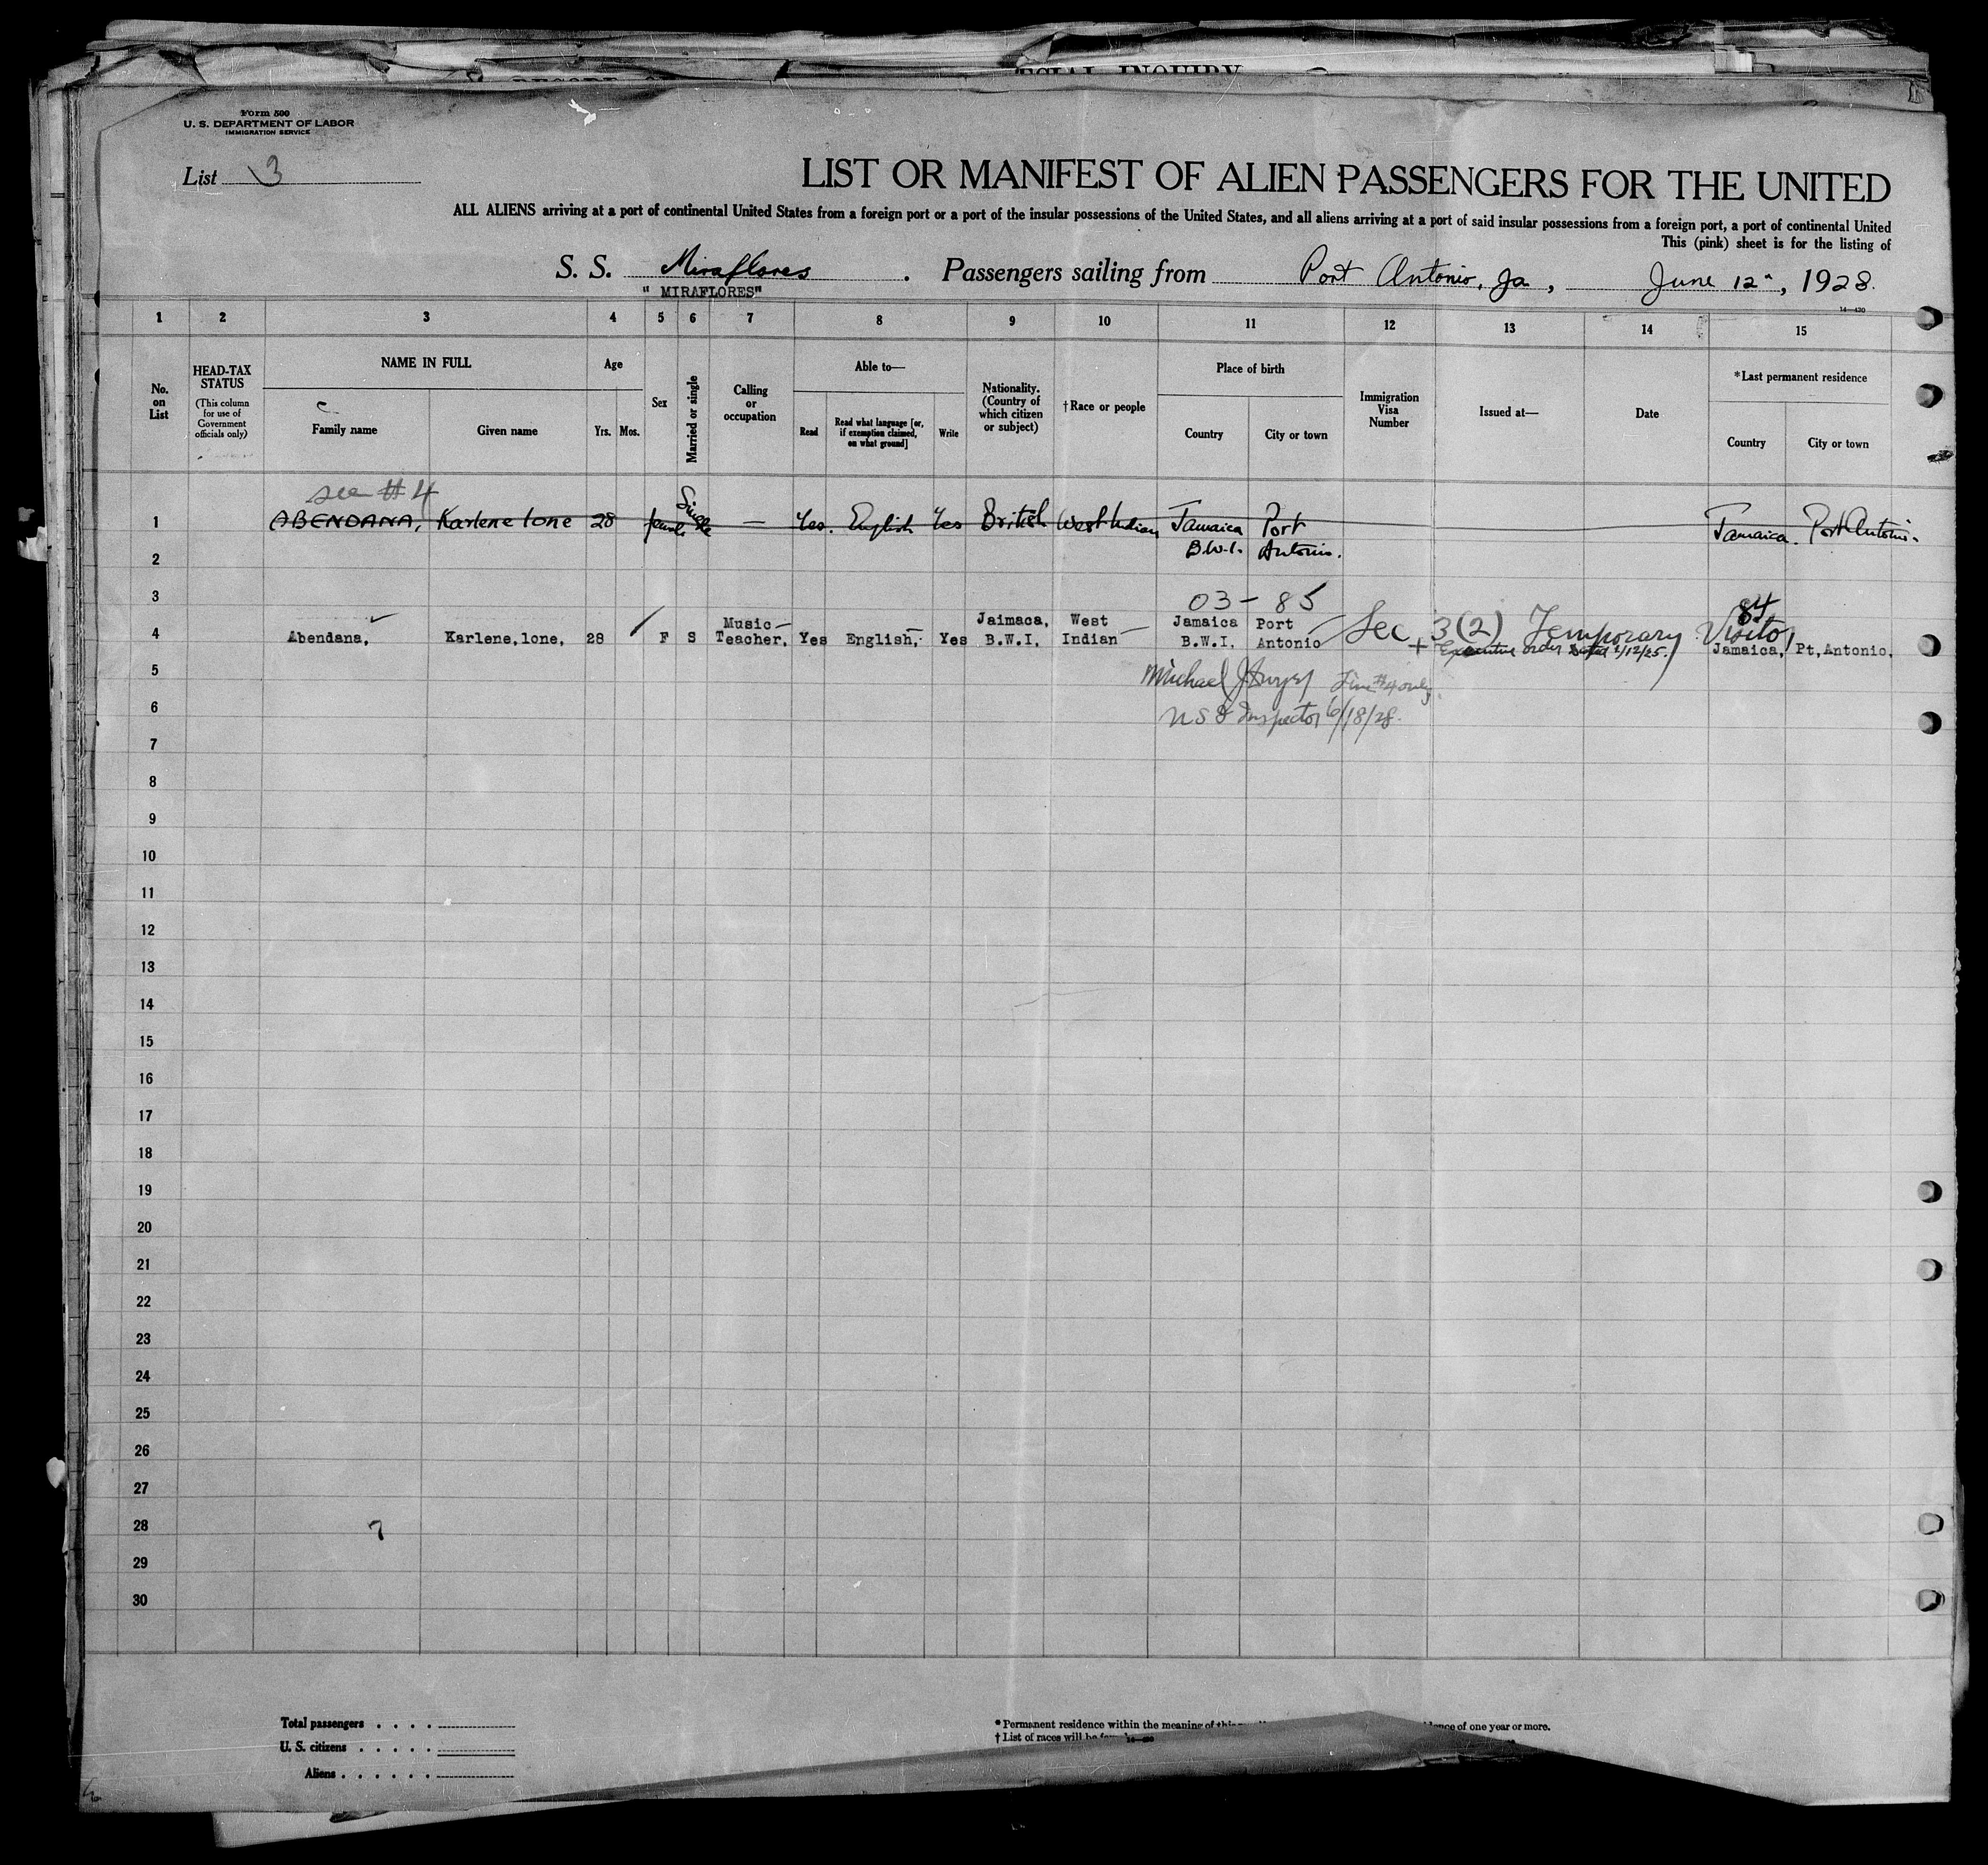 ECIAL INQUIRY
Form 500
U. S. DEPARTMENT OF LABOR
IMMIGRATION SERVICE
List 3
LIST OR MANIFEST OF ALIEN PASSENGERS FOR THE UNITED
ALL ALIENS arriving at a port of continental United States from a foreign port or a port of the insular possessions of the United States, and all aliens arriving at a port of said insular possessions from a foreign port, a port of continental United
This (pink) sheet is for the listing of
S. S. Miraflores. Passengers sailing from Port Antonio, Ja, June 12", 1928.
" MIRAFLORES"
14—430
1 2 3 4 5 6 7 8 9 10 11 12 13 14 15
No. on List
HEAD-TAX STATUS
(This column for use of Government officials only)
NAME IN FULL
Family name Given name
Age
Yrs. Mos.
Sex
Married or single
Calling or occupation
Able to—
Read
Read what language [or, if exemption claimed, on what ground]
Write
Nationality. (Country of which citizen or subject)
†Race or people
Place of birth
Country City or town
Immigration Visa Number
Issued at—
Date
*Last permanent residence
Country City or town
see #4
1 ABENDANA, Karlene Ione 28 female Single — Yes. English Yes British West Indian Jamaica Port Jamaica. Port Antonio.
B.W.I. Antonio.
2
3
03 - 85 84
Music Jaimaca, West Jamaica Port
4 Abendana, Karlene,Ione, 28 F S Teacher, Yes English, Yes B.W.I, Indian B.W.I, Antonio Sec 3(2) Temporary Visitor Jamaica, Pt,Antonio,
+ Executive order dated 2/12/25.
5 Line #4 only.
6 Inspector 6/18/28.
7
8
9
10
11
12
13
14
15
16
17
18
19
20
21
22
23
24
25
26
27
28 7
29
30
Total passengers . . . .
U. S. citizens . . . . .
Aliens . . . . . .
* Permanent residence within the meaning of this
dence of one year or more.
† List of races will be